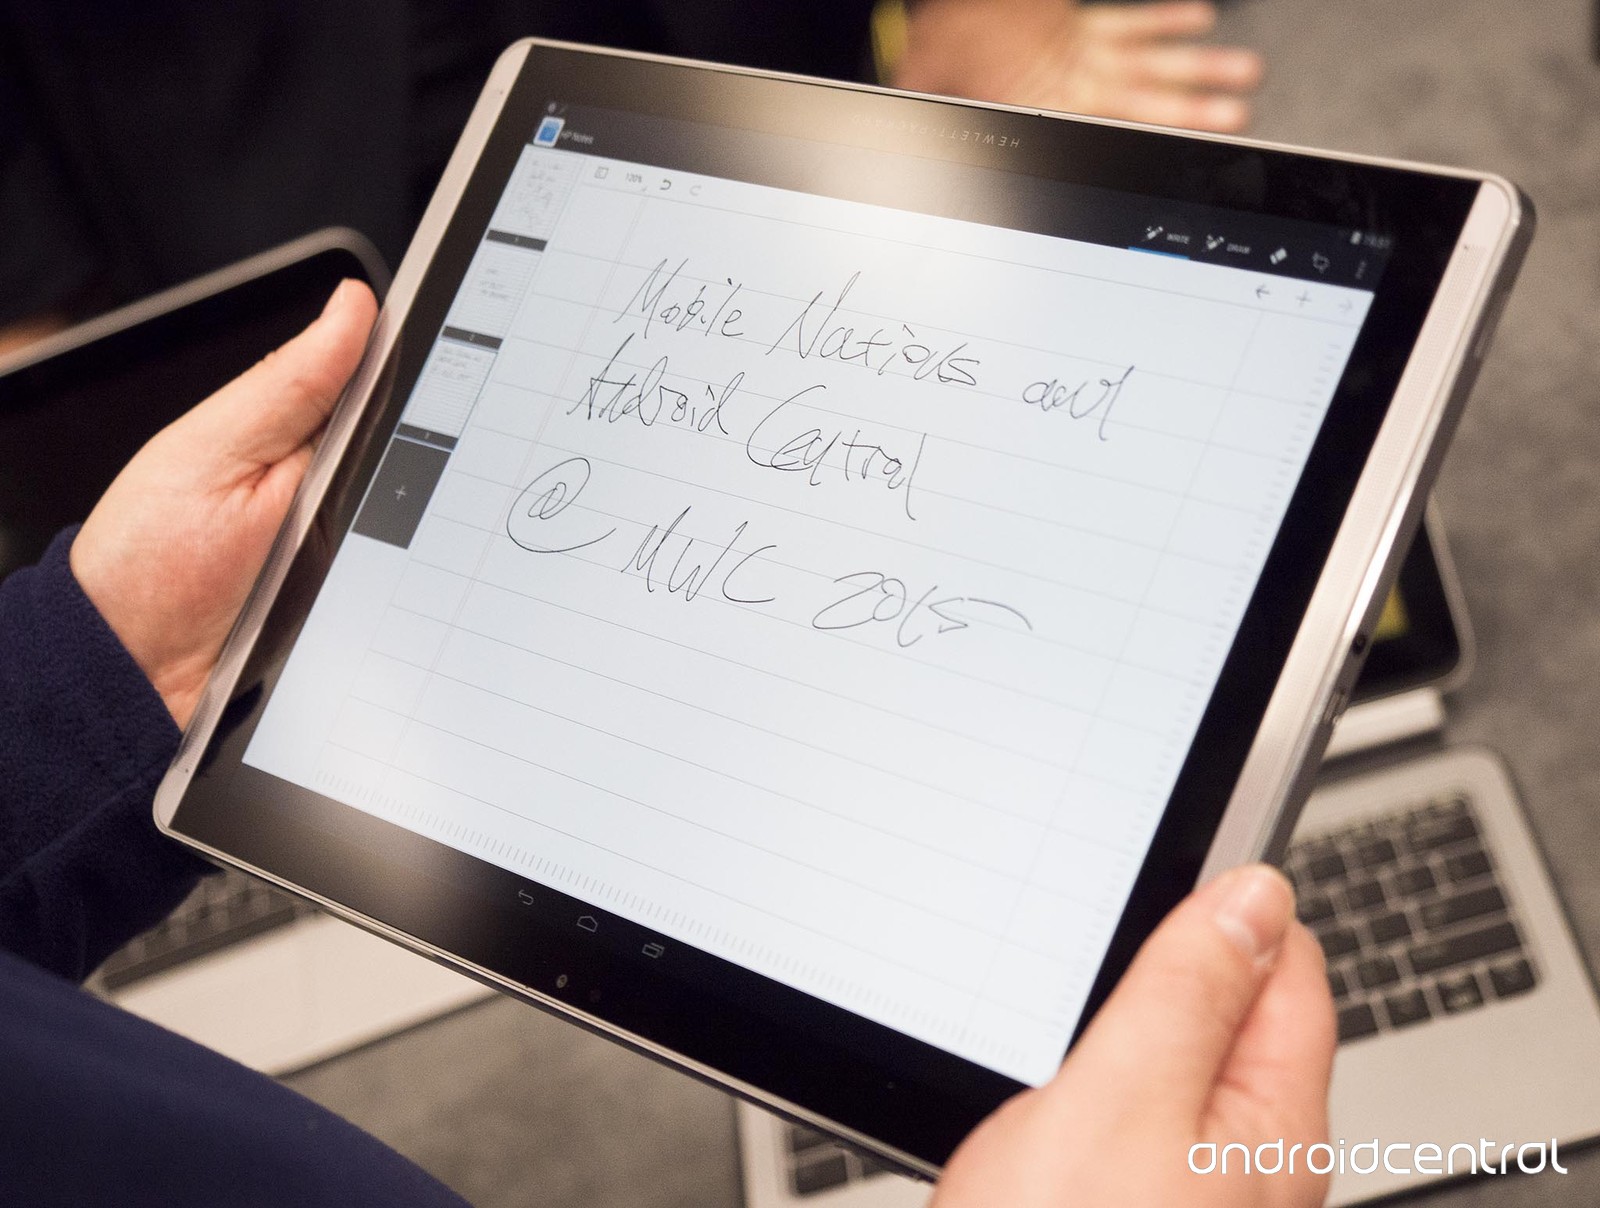 HEWLETT-PACKARD
HP Notes
120%
WRITE DRAW
Mobile Nations and
Android Central
@ MWC 2015
androidcentral